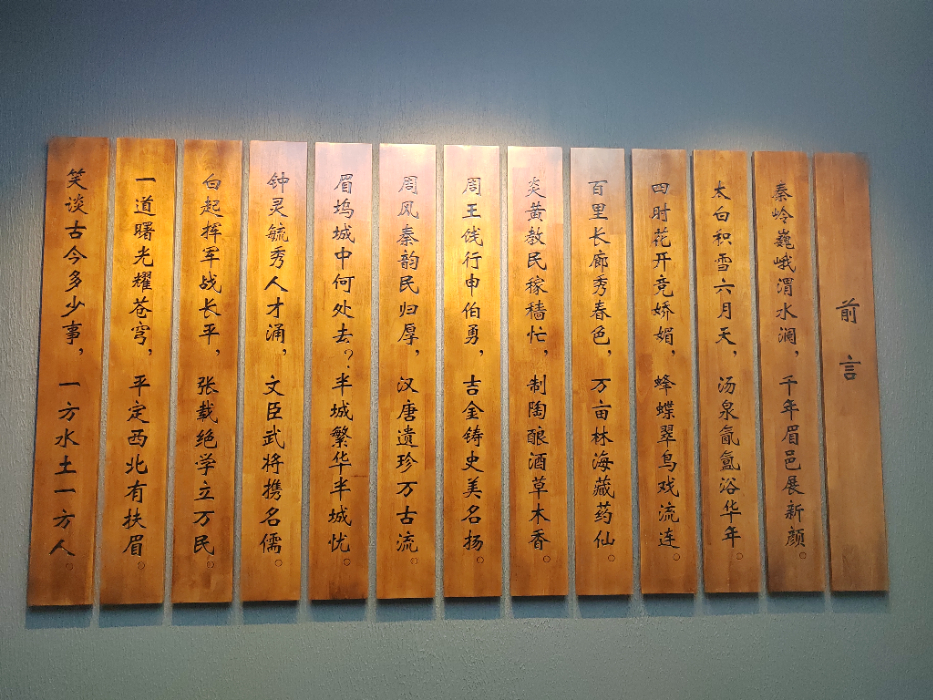 前言
秦岭巍峨渭水澜，千年眉邑展新颜。
太白积雪六月天，汤泉氤氲浴华年。
四时花开竞娇媚，蜂蝶翠鸟戏流连。
百里长廊秀春色，万亩林海藏药仙。
炎黄教民稼穑忙，制陶酿酒草木香。
周王饯行申伯勇，吉金铸史美名扬。
周风秦韵民归厚，汉唐遗珍万古流。
眉坞城中何处去？半城繁华半城忧。
钟灵毓秀人才涌，文臣武将携名儒。
白起挥军战长平，张载绝学立万民。
一道曙光耀苍穹，平定西北有扶眉。
笑谈古今多少事，一方水土一方人。